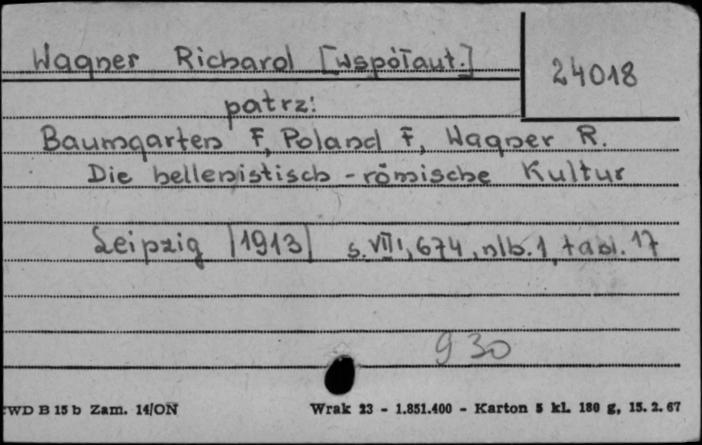 Wagner Richard [współaut.]
24018
patrz:
Baumgarten F, Poland F, Wagner R.
Die hellenistisch-römische Kultur
Leipzig /1913/ s. VIII, 674, nlb. 1, tabl. 17
930
WD B 15 b Zam. 14/ON Wrak 23 - 1.851.400 - Karton 5 kl. 180 g, 15. 2. 67